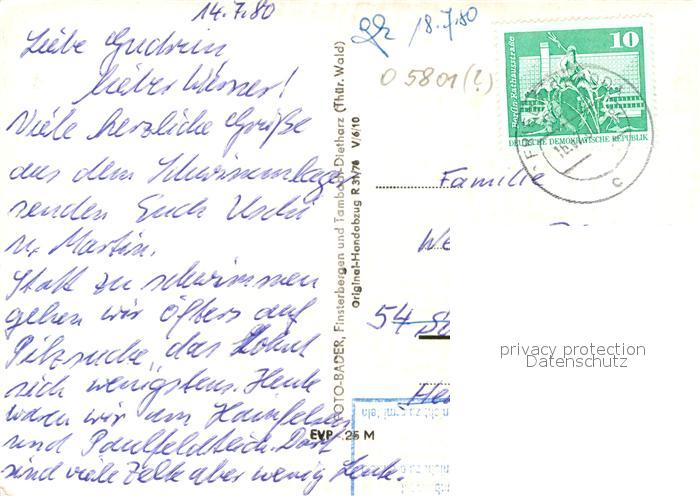 14.7.80
Liebe Gudrun
lieber Werner!
Viele herzliche Grüße
aus dem Schwimmlager
senden Euch Uschi
u. Martin.
Statt zu schwimmen
gehen wir öfters auf
Pilzsuche, das lohnt
sich wenigstens. Heute
waren wir am Hainfelsen
und Paulfeldteich. Dort
sind viele Zelte aber wenig Leute.
FOTO-BADER, Finsterbergen und Tambach-Dietharz (Thür. Wald)
Original-Handabzug R 31/76 V/6/10
EVP -.25 M
18.7.80
O 5801 (?)
10
Berlin, Rathausstraße
DEUTSCHE DEMOKRATISCHE REPUBLIK
c
Familie
We
54
privacy protection
Datenschutz